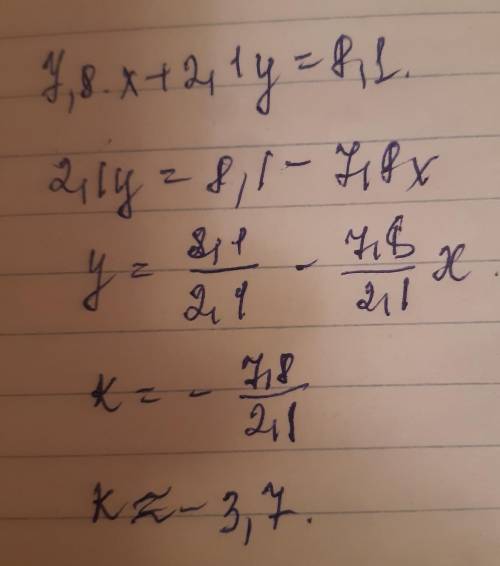 7,8·x+2,1y=8,1.
2,1y=8,1-7,8x
y=8,1/2,1-7,8/2,1 x.
k=-7,8/2,1
k≈-3,7.